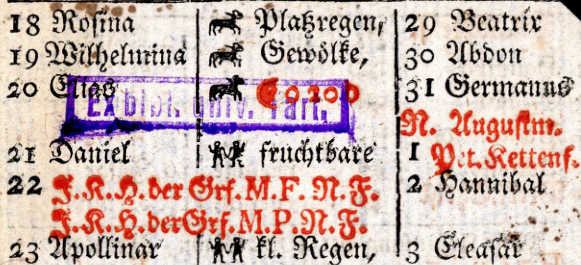 18 Rosina Platzregen, 29 Beatrix
19 Wilhelmina Gewölke, 30 Abdon
20 Elias 31 Germanus
Ex bibl. univ. Tart.
N. Augustm.
21 Daniel fruchtbare 1 Pet. Kettenf.
22 J.K.H. der Grf. M.F. N.F. 2 Hannibal
J.K.H. der Grf. M.P. N.F.
23 Apollinar kl. Regen, 3 Eleasar